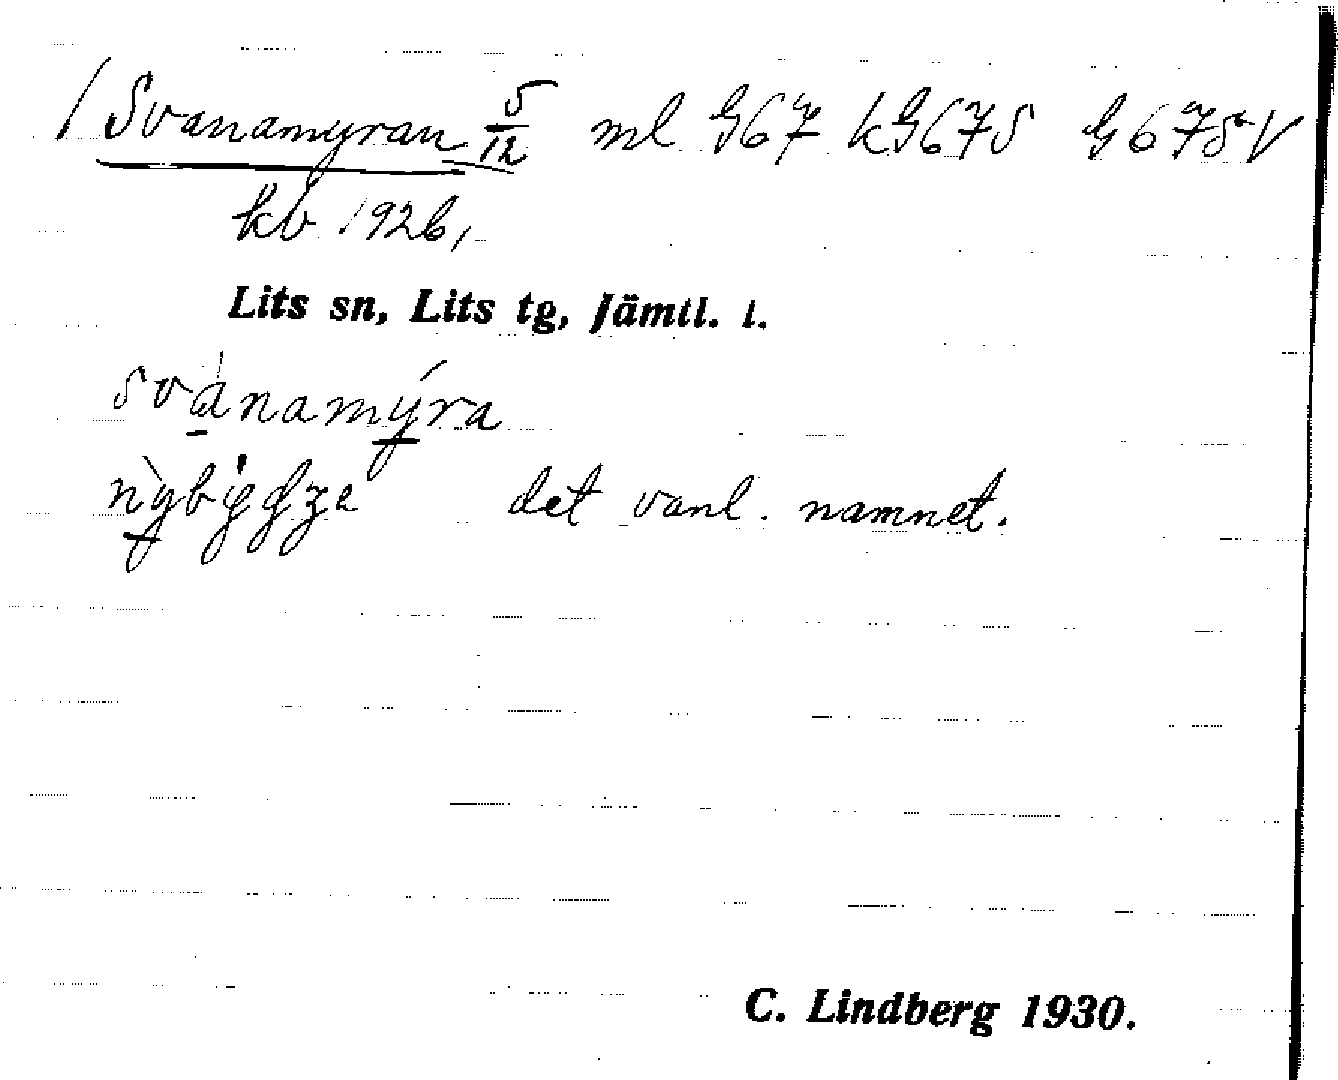 / Svanamyran 5/12 ml G67 kG675 G675V
kb 1926,
Lits sn, Lits tg, Jämtl. l.
svánamýra
det vanl. namnet.
C. Lindberg 1930.